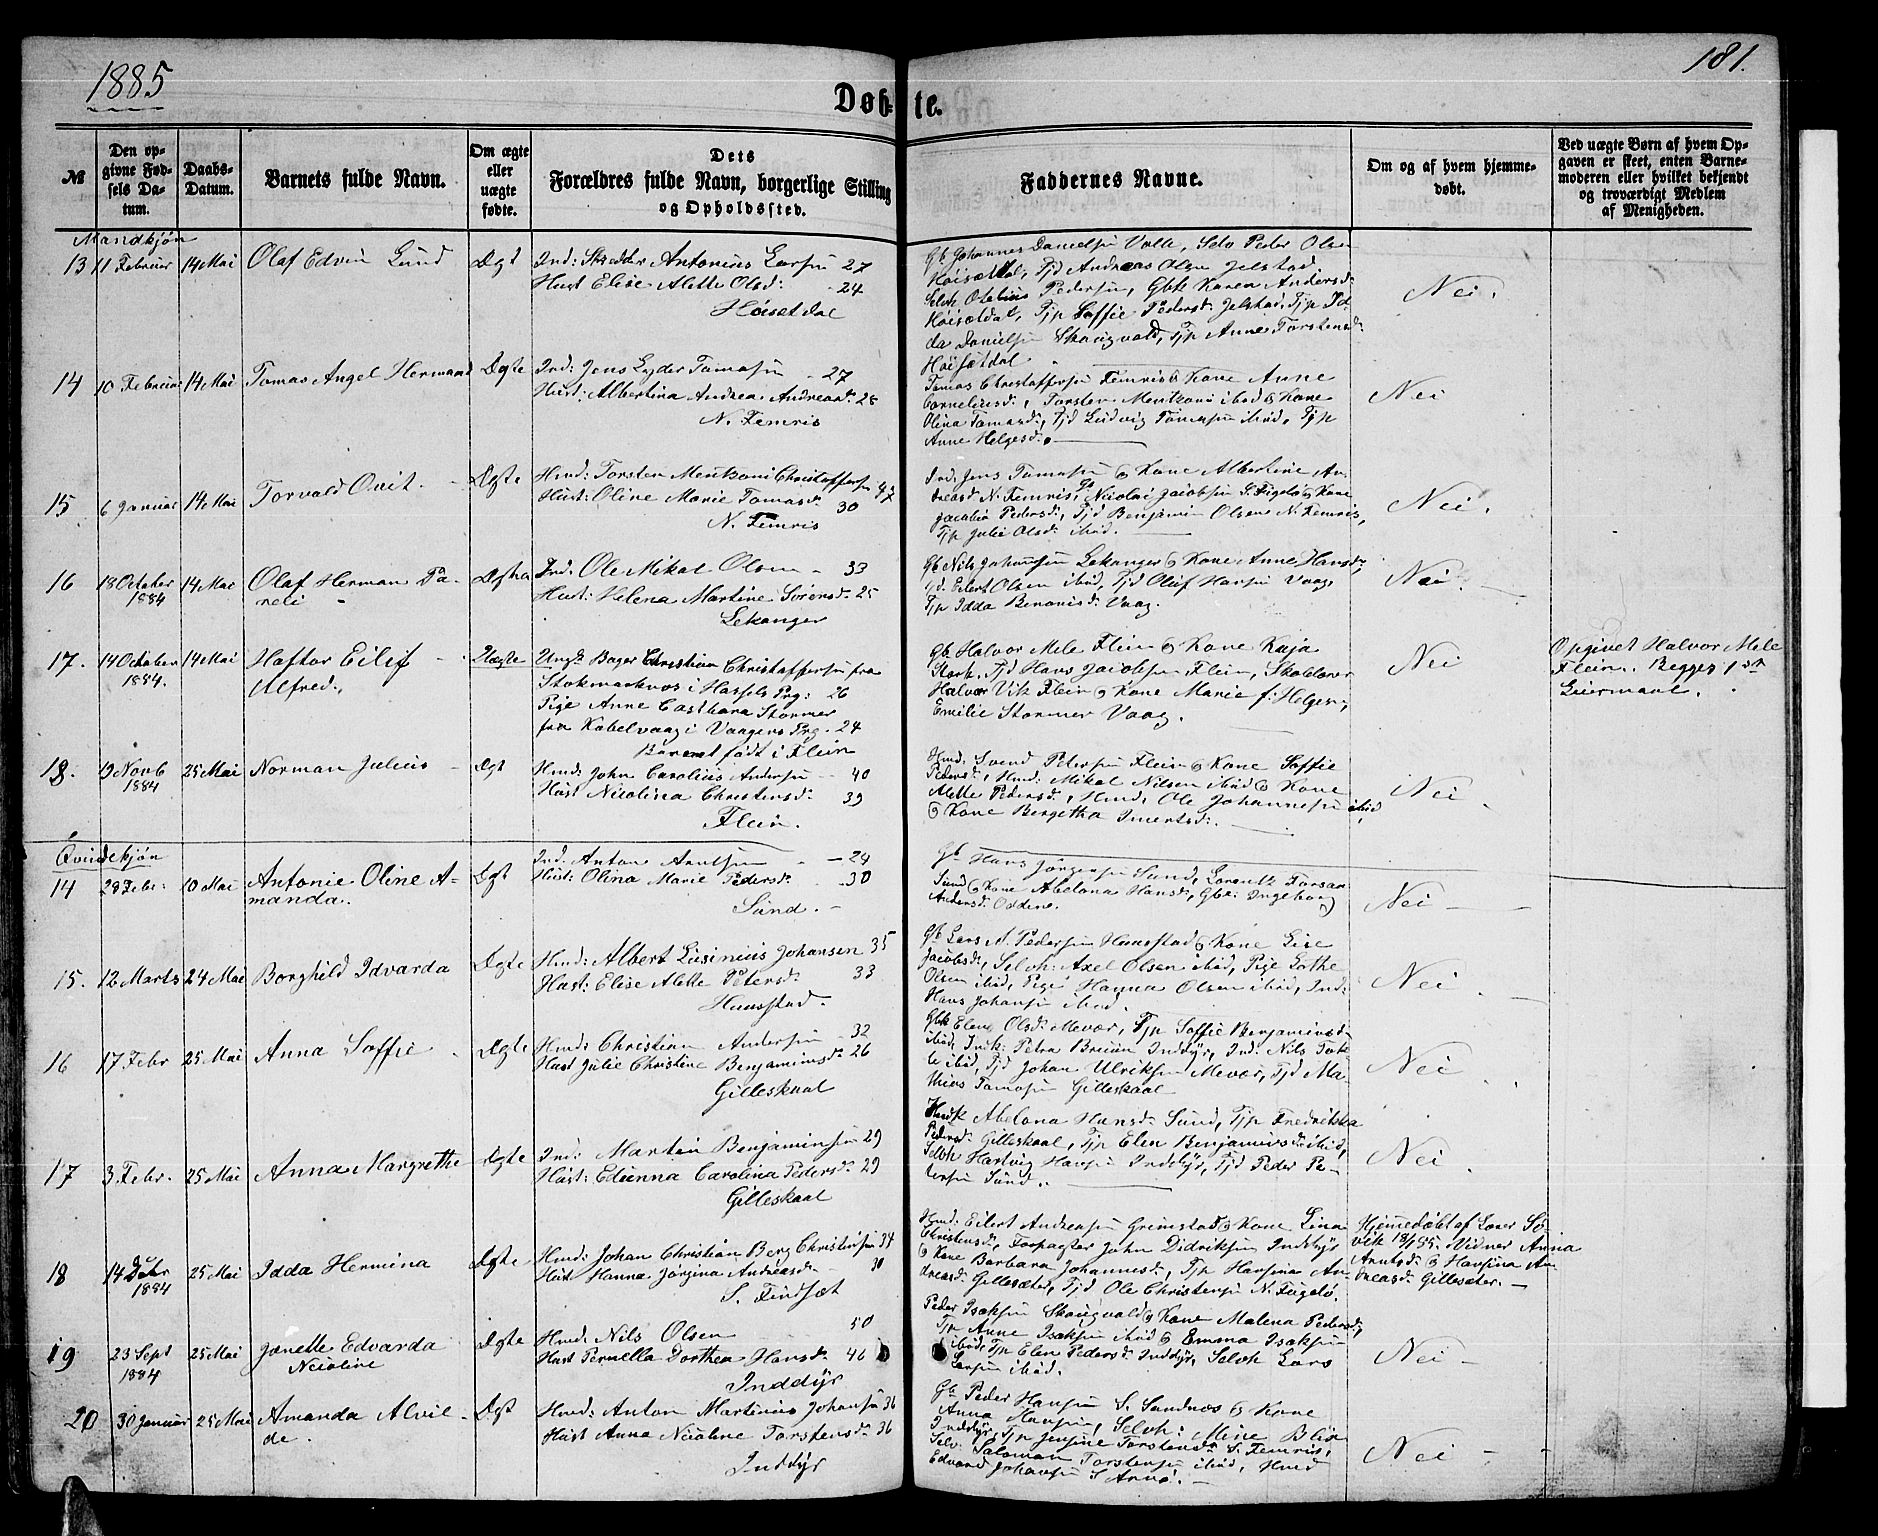 1885
181.
Døbte.
№
Den opgivne Fødsels Datum.
Daabs-Datum.
Barnets fulde Navn.
Om ægte eller uægte fødte.
Dets Forældres fulde Navn, borgerlige Stilling og Opholdssted.
Faddernes Navne.
Om og af hvem hjemmedøbt.
Ved uægte Børn af hvem Opgaven er skeet, enten Barnemoderen eller hvilket bekjendt og troværdigt Medlem af Menigheden.
Mandkjøn
13 11 Februar 14 Mai Olaf Edvin Lund Ægt Ind: Skrædder Antonius Larsen 27
Hust Elise Alette Olsd: 24
Høisetdal
Gb Johannes Danielsen Valle, Selv Peder Olsen
Høisætdal, Tjd Andreas Olsen Jelstad
Selvh Otelius Pedersen, Gbk Karen Andersd:
Høisætdal, Tjp Soffie Pedersd: Jelstad, Tjp Id-
da Danielsen Skaugvold, Tjp Anne Torstensd:
Høisætdal
Nei.
14 10 Februar 14 Mai Tomas Angel Hermand Ægte Ind: Jens Lyder Tomasen - 27
Hust: Albertina Andrea Andreasd: 28
N. Femris
Tomas Christoffersen Femris & Kone Anne
Corneliusd:, Torsten Mentzoni ibid & Kone
Olina Tomasd:, Tjd Ludvig Tomasen ibid, Tjp
Anne Helgesd:
Nei
15 6 Januar 14 Mai Torvald Qvit. Ægte Hmd: Torsten Mentzoni Christoffersen 47
Hust: Oline Marie Tomasd: 30
N. Femris
Ind: Jens Tomasen & Kone Albertine An-
dreasd: N. Femris, Gb Nicolai Jacobsen S. Fugelø & Kone
Jacobia Pedersd:, Tjd Benjamin Olsen N. Femris,
Tjp Julie Olsd: ibid.
Nei.
16 18 October 1884 14 Mai Olaf Herman Pa-
reli - Ægte Ind: Ole Mikal Olsen - 33
Hust: Helena Martine Sørensd: 25
Lekanger
Gb Nils Johansen Lekanger & Kone Anne Hansd:,
Tjd. Eilert Olsen ibid, Tjd Oluf Hansen Vaag,
Tjp Idda Benonisd: Vaag.
Nei.
17. 14 October 1884. 14 Mai Haftor Eilif
Alfred. Uægte Ungk Bager Christian Christoffersen fra
Stokmarknes i Hassels Prg: 26
Pige Anne Castbara Stormer
fra Kabelvaag i Vaagens Prg. 24
Barnet født i Flein
Gb Halvor Mele Flein & Kone Kaja
Stork, Tjd Hans Jacobsen Flein, Skolelærer
Halvor Vik Flein & Kone Marie f: Helgesen,
Emilie Stormer Vaag.
Nei
Opgivet Halvor Mele
Flein. Begges 1ste
Leiermaal.
18. 19 Novb 1884 25 Mai Norman Julius - Ægt Hmd: John Carolius Andersen - 40
Hust Nicolina Christensd: 39
Flein.
Hmd: Svend Petersen Flein & Kone Soffie
Pedersd:, Hmd: Mikal Nilsen ibid & Kone
Alette Pedersd:, Hmd: Ole Johannesen ibid
& Kone Bergetha Imertsd:.
Nei
Qvindekjøn
14 28 Febr: 10 Mai Antonie Oline A-
manda. Ægt Ind: Anton Arntsen - 24
Hust: Olina Marie Pedersd: 30
Sund. -
Gb Hans Jørgensen Sund, Lorentz Torsen
Sund & Kone Abelona Hansd:, Gbk: Ingeborg
Andersd: Oddene.
Nei -
15. 12 Marts 24 Mai Borghild Idvarda Ægte Hmd: Albert Lusinius Johansen 35
Hust: Elise Alette Petersd: 33
Haugstad.
Gb Lars N. Pedersen Haugstad & Kone Lise
Jacobsd:, Selvh: Axel Olsen ibid, Pige Lothe
Olsen ibid, Pige Hanna Olsen ibid, Ind:
Hans Johansen ibid.
Nei
16 17 Febr 25 Mai Anna Soffie - Ægte Hmd: Christian Andersen - 32
Hust Julie Christine Benjaminsd: 26
Gilleskaal
Gbk Elen Olsd: Mevær, Tjp Soffie Benjaminsd:
ibid, Indk: Petra Bruun Inddyr, Ind: Nils Tok-
le ibid, Tjd Johan Ulriksen Mevær, Tjd Ma-
thias Tomasen Gilleskaal
Nei
17 3. Febr. 25 Mai Anna Margrethe Ægte Ind: Martin Benjaminsen 29
Hust: Edianna Carolina Pedersd: 29
Gilleskaal
Hmdk Abelona Hansd: Sund, Tjp Fredrikka
Pedersd: Gilleskaal, Tjp Elen Benjaminsd: ibid,
Selvh Hartvig Hansen Inddyr, Tjd Peder Pe-
dersen Sund.
Nei
18 14 Debr 1884 25 Mai Idda Hermina Ægte Hmd: Johan Christian Berg Christensen 34
Hust Hanna Jørgina Andreasd: 30
S. Findset
Hmd: Eilert Andreasen Grimstad & Kone Lina
Christensd:, Forpagter John Didriksen Inddyr
& Kone Barbara Johannesd:, Tjp Hansina An-
dreasd: Gillesæter, Tjd Ole Christensen N. Fugelø.
Hjemmedøbt af Lærer Sø-
vik 18/1 85. Vidner Anna
Arntsd: & Hansina An-
dreasd: Gillesæter. -
19 23 Sept 1884 25 Mai Janette Edvarda
Nicoline Ægte Hmd: Nils Olsen 50
Hust Pernella Dorthea Hansd: 46
Inddyr
Peder Isaksen Skaugvold & Kone Malena Pedersd:,
Tjp Anne Isaksen ibid & Emma Isaksen
ibid, Tjp Elen Pedersd: Inddyr, Selvh Lars
Larsen ibid.
Nei -
20 30 Januar 25 Mai Amanda Alvil-
de. Ægt Hmd: Anton Martinius Johansen 36
Hust Anna Nicoline Torstensd: 36
Inddyr
Gb Peder Hansen S. Sandnes & Kone
Anna Hansen, Selvh: Mine Blix
Inddyr, Tjp Jensine Torstensd: S. Femris,
Selv: Salomon Torstensen ibid, Hmd
Edvard Johansen S. Arnø. -
Nei -